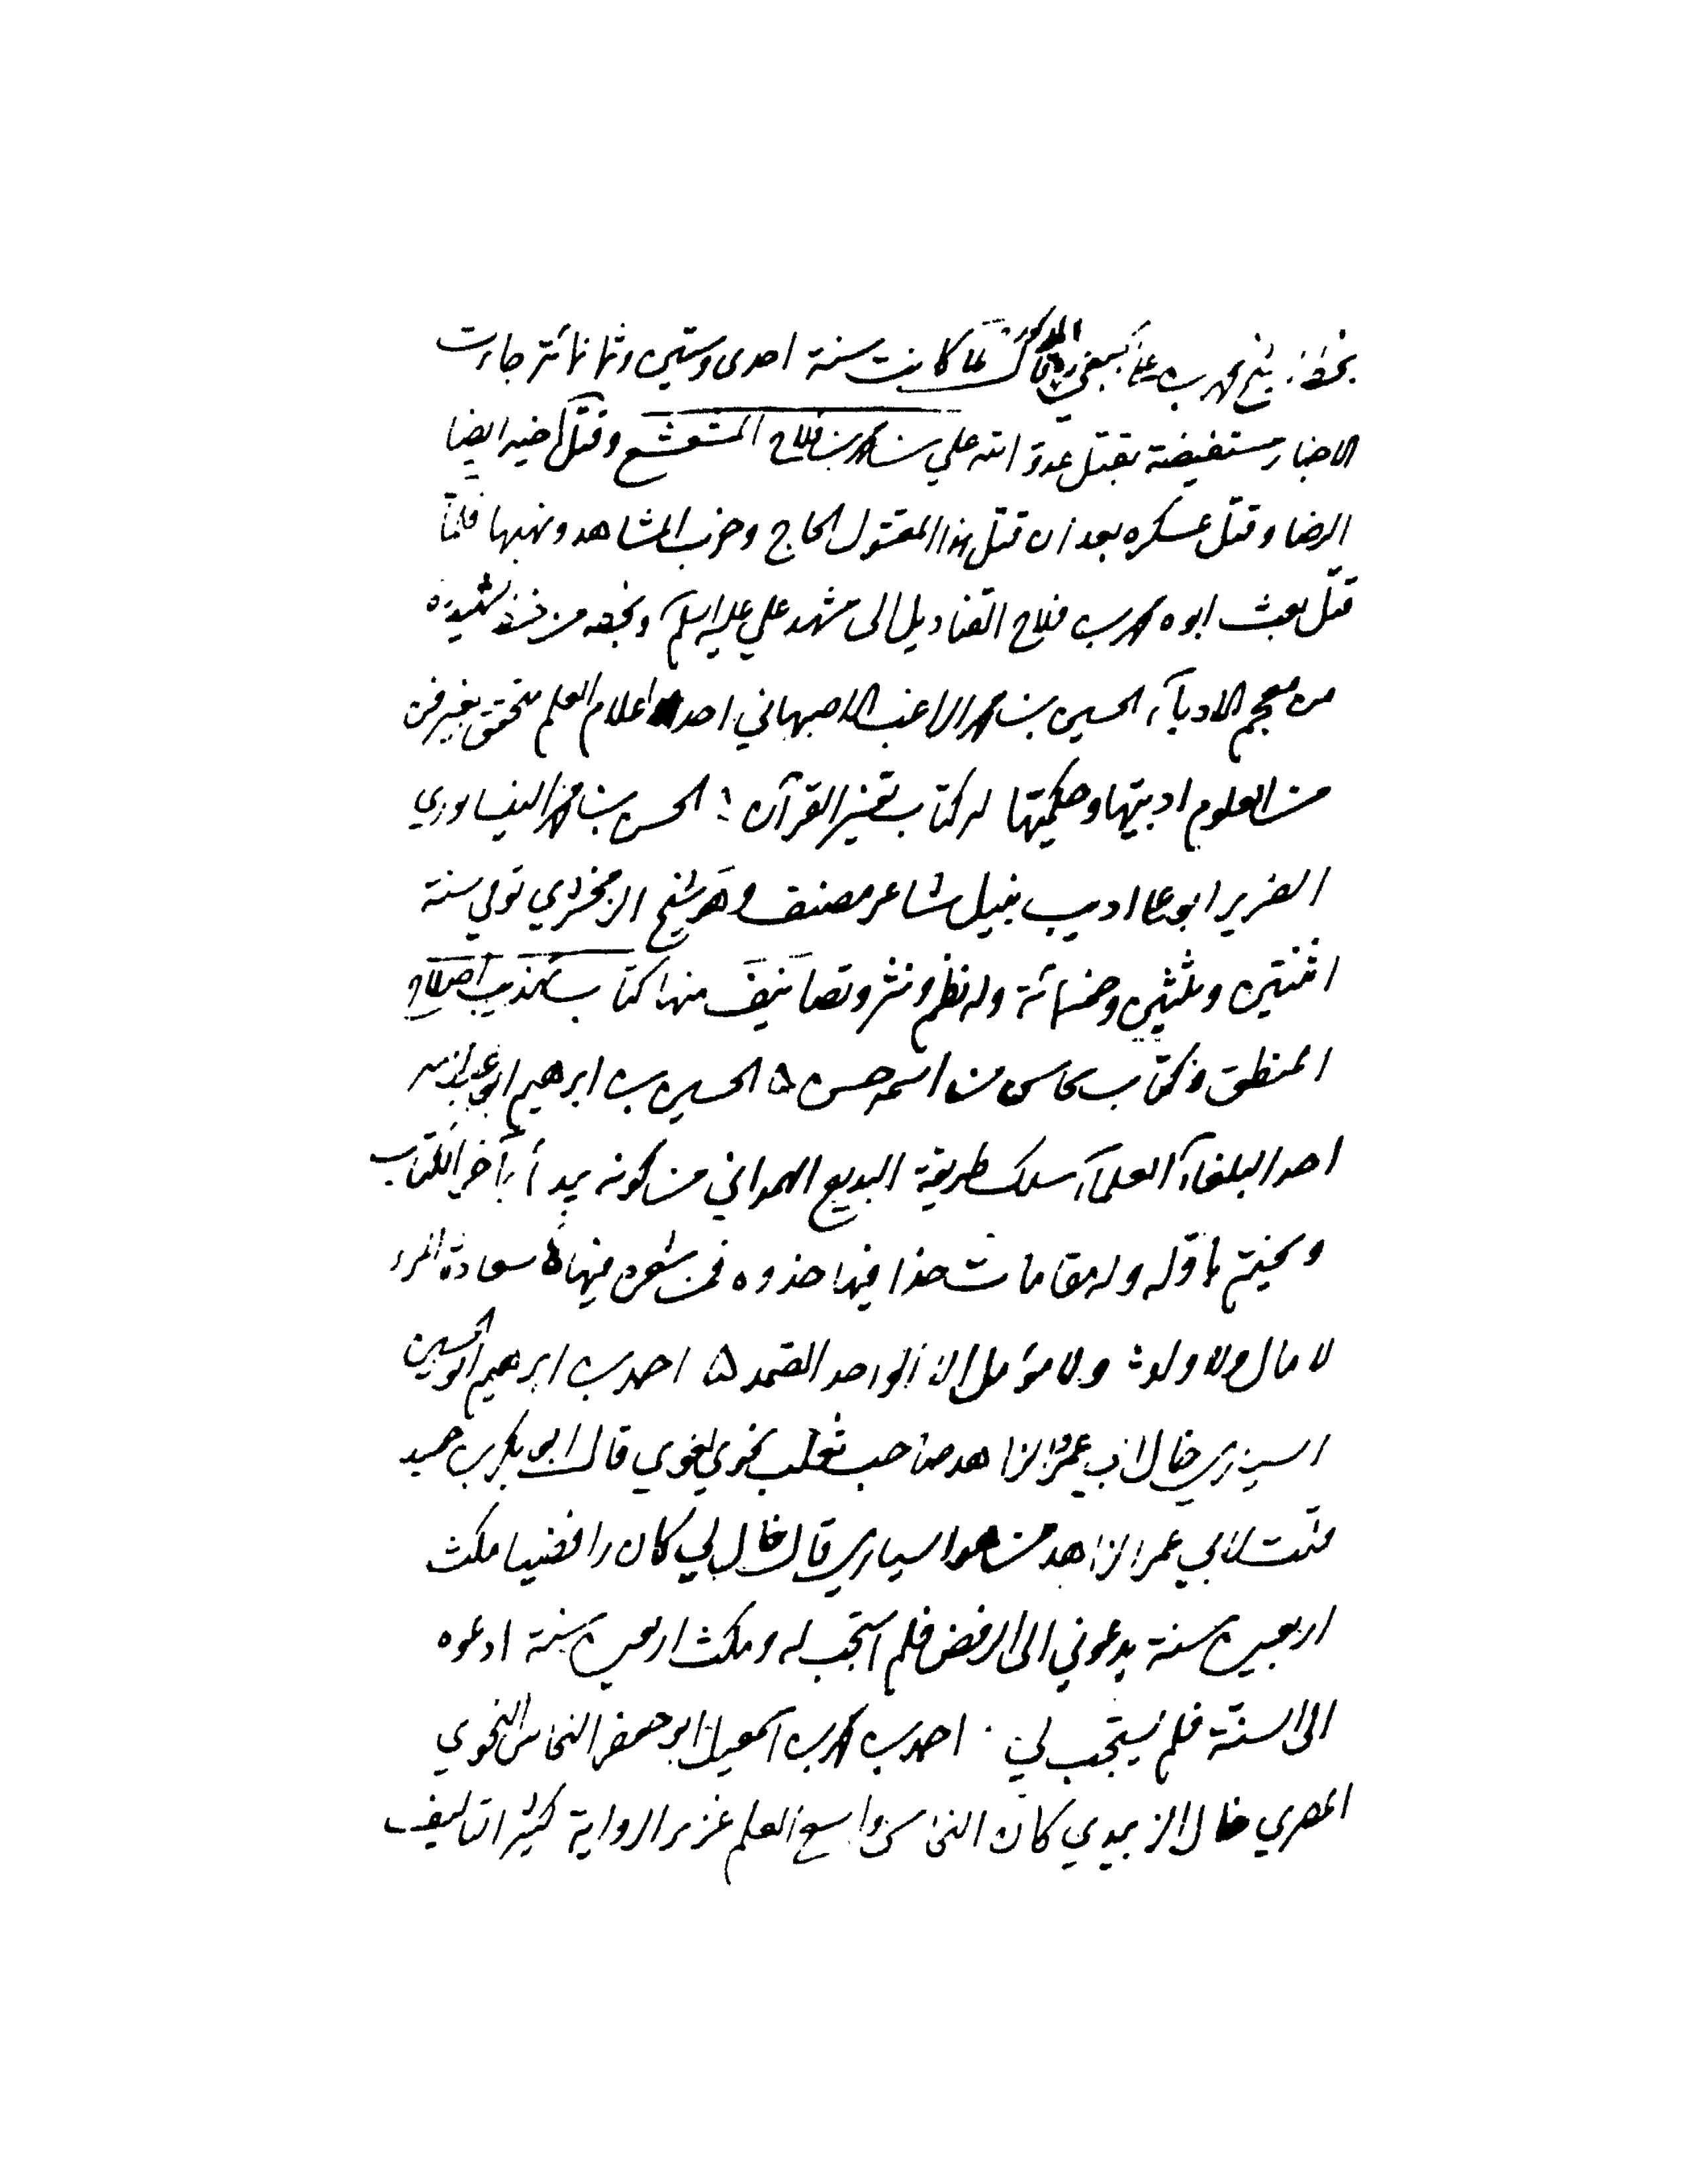 بخط الشيخ محمد بن علي الجبعي المذكور لما كانت سنة احدى وستين وثمانمائة جاءت
الاخبار مستفيضة بقتل عدو الله علي بن محمد بن فلاح المشعشع وقتل اخيه ايضا
الرضا وقتل عسكره بعد ان قتل هذا المقتول الحاج وخرب المشاهد ونهبها فلما
قتل بعث ابوه محمد بن فلاح القناديل الى مشهد علي عليه السلم وبخطه من خط
من معجم الادباء الحسين بن محمد الراغب الاصبهاني احد اعلام العلم متحقق بغير فن
من العلوم ادبيتها وحكميتها له كتاب تفسير القرآن الحسن بن محمد النيسابوري
الضرير ابو علي اديب نبيل شاعر مصنف وهو شيخ الزمخشري توفي سنة
اثنتين وثلثين وخمسمائة وله نظم ونثر وتصانيف منها كتاب تهذيب اصلاح
المنطق وكتاب محاسن من اسمه حسن ۵ الحسين بن ابرهيم ابو عبد الله
احد البلغاء العلماء سلك طريقة البديع الهمداني من كونه يبدأ بآخر الكتاب
ويختم باوله وله مقامات حذا فيها حذوه فمن شعره فيها ۵ سعادة المرء
لا مال ولا ولد ولا مؤمل الا الواحد الصمد ۵ احمد بن ابرهيم ابو الحسين
السياري خال ابي عمر الزاهد صاحب ثعلب نحوي لغوي قال ابو بكر بن حميد
قلت لابي عمر الزاهد من هو السياري قال خال لي كان رافضيا مكث
اربعين سنة يدعوني الى الرفض فلم استجب له ومكث اربعين سنة ادعوه
الى السنة فلم يستجب لي . احمد بن محمد بن اسمعيل ابو جعفر النحاس النحوي
المصري قال الزبيدي كان النحاس واسع العلم غزير الرواية كثير التاليف